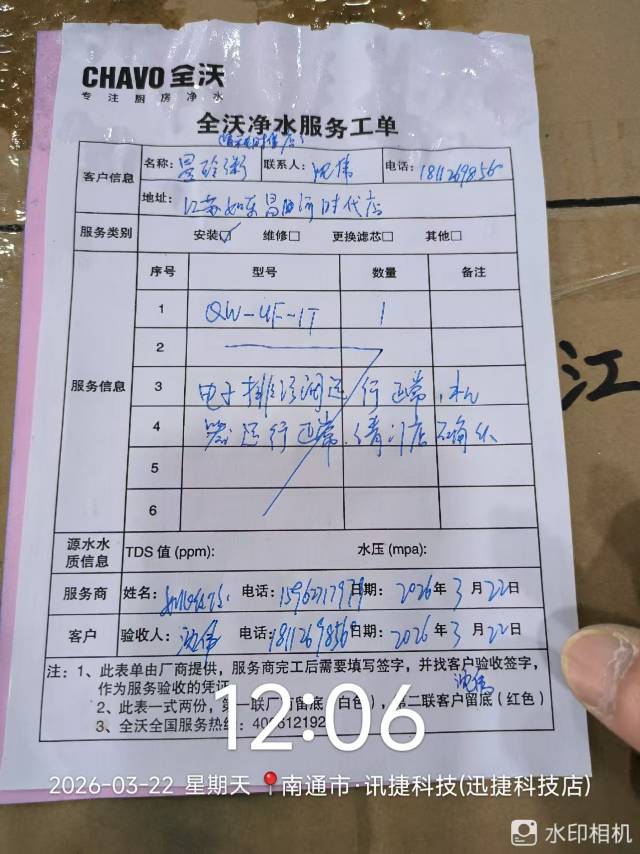 CHAVO 全沃
专注厨房净水
全沃净水服务工单
客户信息 名称: 联系人: 沈伟 电话:
地址: 江苏如东 时代店
服务类别 安装☑ 维修□ 更换滤芯□ 其他□
服务信息 序号 型号 数量 备注
1 QW-UF-1T 1
2
3 电子排污阀运行正常,机
4 器运行正常,请门店
5
6
源水水质信息 TDS 值 (ppm): 水压 (mpa):
服务商 姓名: 电话: 日期: 2026年3月22日
客户 验收人: 沈伟 电话: 日期: 2026年3月22日
注:1、此表单由厂商提供,服务商完工后需要填写签字,并找客户验收签字,
作为服务验收的凭证
沈伟
2、此表一式两份,第一联厂商留底(白色),第二联客户留底(红色)
3、全沃全国服务热线:
12:06
2026-03-22 星期天 南通市·讯捷科技(迅捷科技店)
水印相机
江